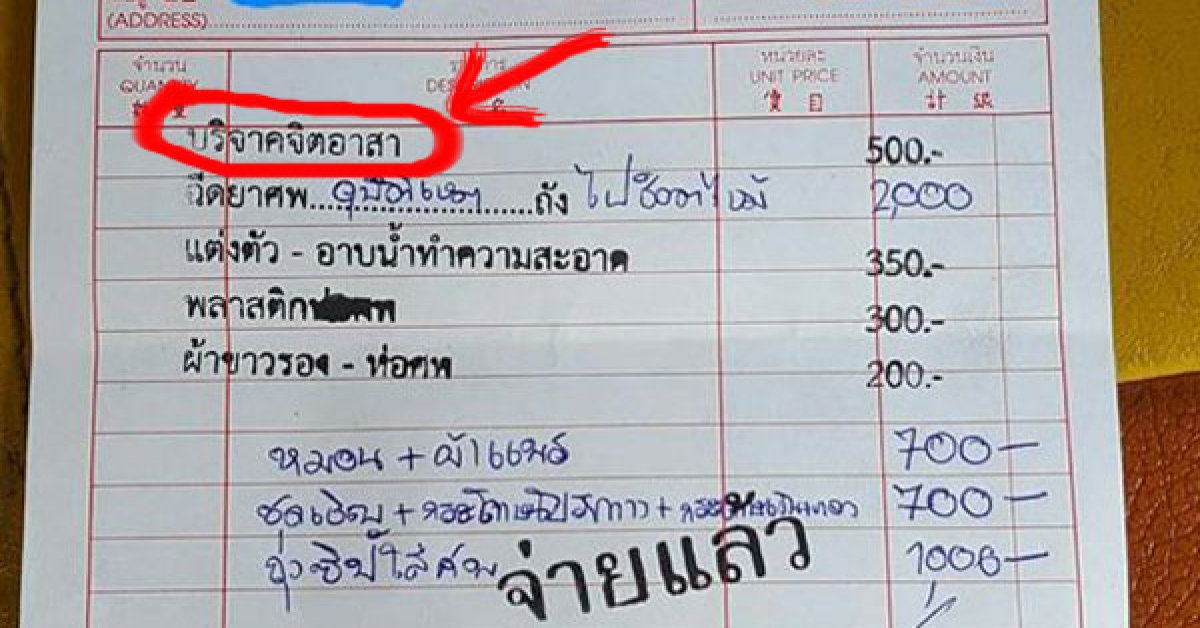 (ADDRESS)
จำนวน รายการ หน่วยละ จำนวนเงิน
QUANTITY UNIT PRICE AMOUNT
價 目 計 銀
บริจาคจิตอาสา 500.-
ฉีดยาศพ....................ถัง 2,000
แต่งตัว - อาบน้ำทำความสะอาด 350.-
พลาสติก 300.-
ผ้าขาวรอง - ห่อศพ 200.-
หมอน + ผ้าแพร 700-
700-
ถุงซิปใส่ศพ 1000-
จ่ายแล้ว